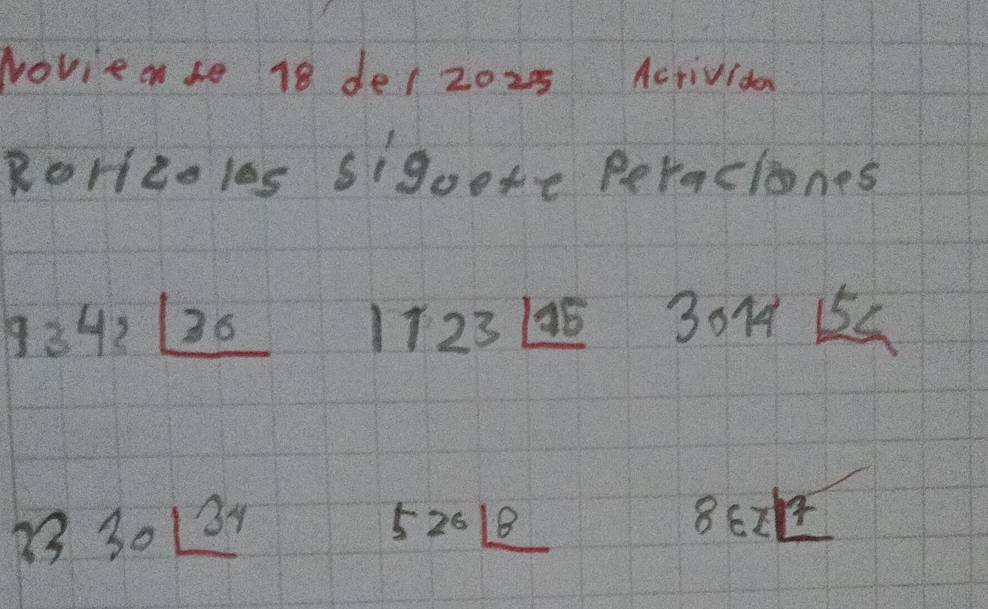 Noviemre 18 del 2025 Activida
Rorizo los sigoete Peraciones
9342 36
1123 15
3014 56
2330 34
526 8
832 7